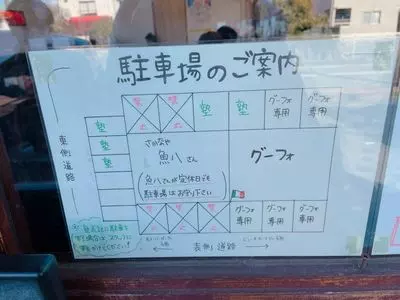 駐車場のご案内
禁 禁 塾 塾 グーフォ専用 グーフォ専用
止 止
東側道路
塾
塾
塾
さかなや
魚八さん
(魚八さんが定休日でも
駐車場はお守り下さい)
グーフォ
禁 禁 禁 グーフォ専用 グーフォ専用 グーフォ専用
止 止 止
表側道路